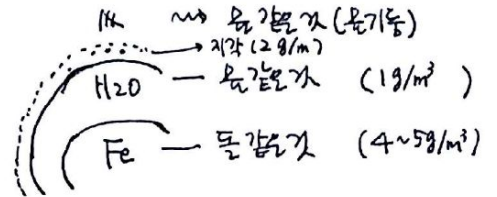 물같은것(물기둥)
지각(2g/m)
H2O — 물같은것 (1g/m³)
Fe — 돌같은것 (4~5g/m³)